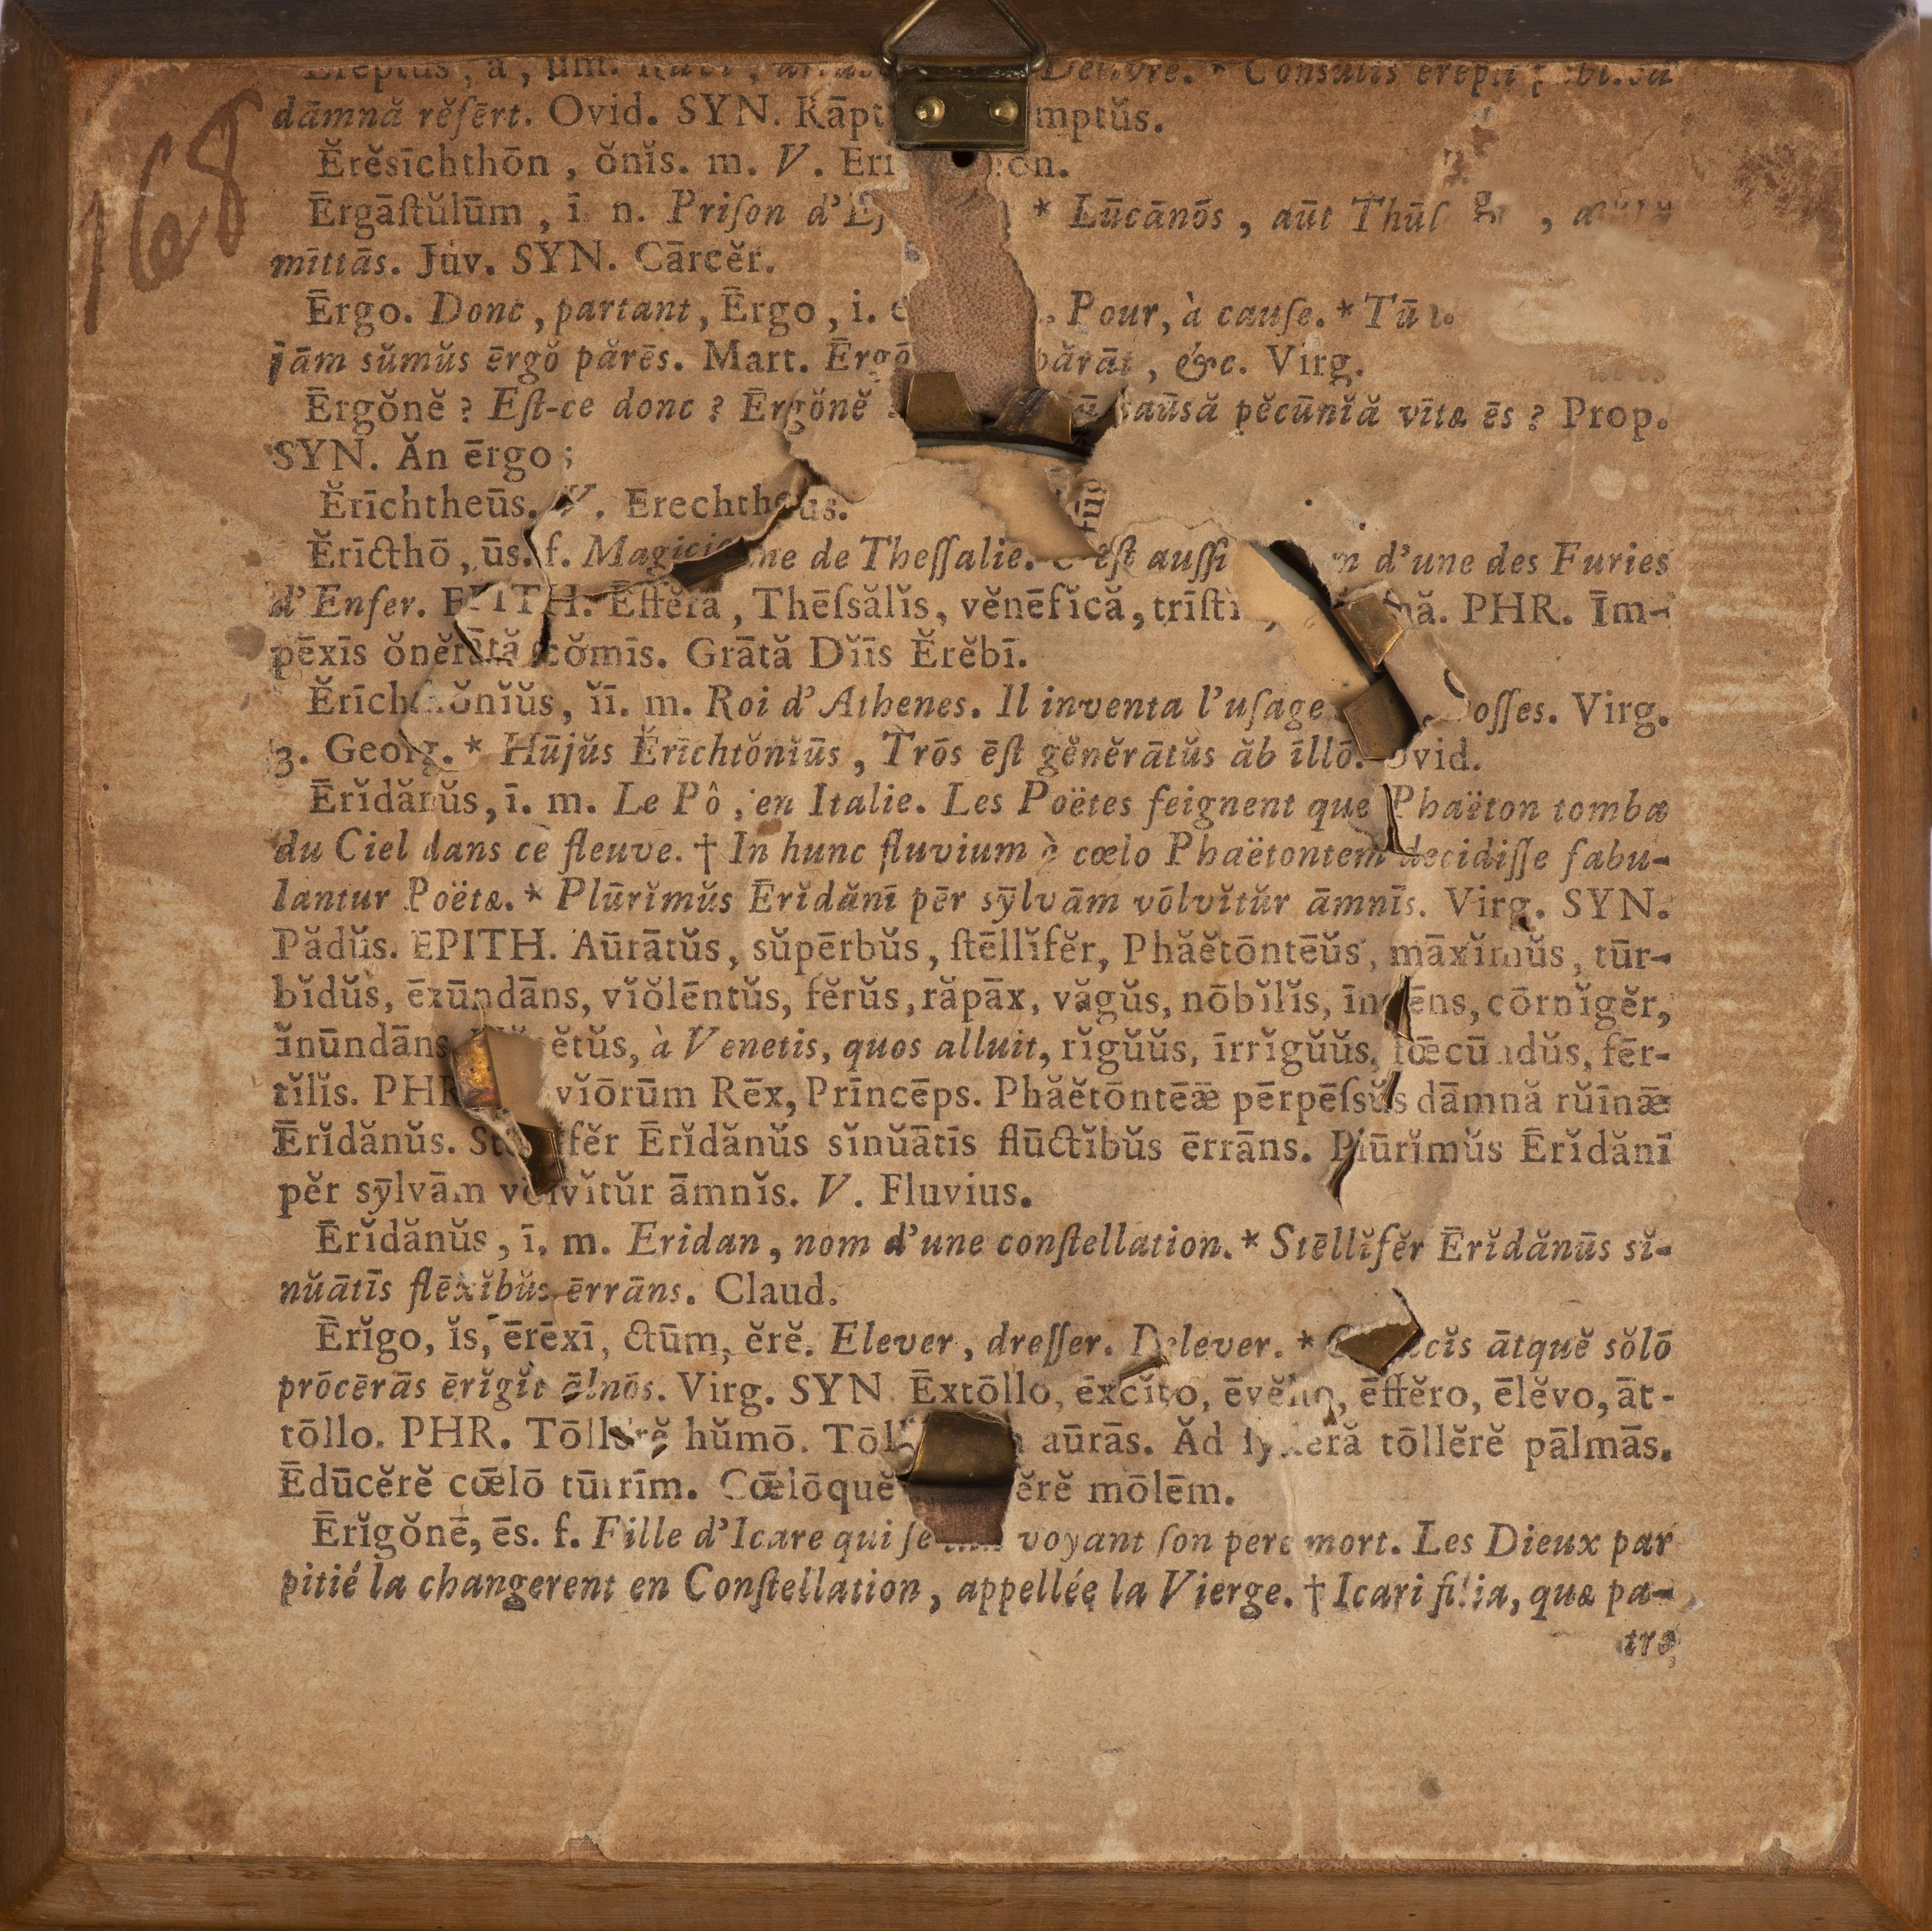 168
Ēreptus, a, um. Délivré. * Consulis erepti
dāmnă rĕſērt. Ovid. SYN. Rāpt mptŭs.
Ĕrĕsīchthōn, ŏnĭs. m. V. Eri on.
Ērgāſtŭlūm, ī n. Priſon d'E * Lūcānōs, aūt Thūſ
mīttās. Juv. SYN. Cārcĕr.
Ērgo. Donc, partant, Ērgo, i. e Pour, à cauſe. * Tū
jām sŭmŭs ērgŏ părēs. Mart. Ērgō părāt, &c. Virg.
Ērgŏnĕ? Eſt-ce donc? Ērgŏnĕ caūsă pĕcūnĭă vītæ ēs? Prop.
SYN. Ăn ērgo;
Ĕrīchtheūs. V. Erechtheus.
Ĕrīcthō, ūs. f. Magicienne de Theſſalie. C'eſt auſſi d'une des Furies
d'Enfer. EPITH. Ēffĕră, Thēſsălĭs, vĕnēfĭcă, trīſtĭ ă. PHR. Īm-
pēxīs ŏnĕrātă cŏmīs. Grātă Dĭīs Ĕrĕbī.
Ĕrīchthŏnĭŭs, ĭī. m. Roi d'Athenes. Il inventa l'uſage oſſes. Virg.
3. Georg. * Hūjŭs Ĕrīchtŏnĭūs, Trōs ēſt gĕnĕrātŭs ăb īllō. Ovid.
Ērĭdănŭs, ī. m. Le Pô, en Italie. Les Poëtes feignent que Phaëton tomba
du Ciel dans ce fleuve. † In hunc fluvium è cœlo Phaëtontem decidiſſe fabu-
lantur Poëtæ. * Plūrĭmŭs Ērĭdănī pēr sȳlvām vōlvĭtŭr āmnīs. Virg. SYN.
Pădŭs. EPITH. Aūrātŭs, sŭpērbŭs, ſtēllĭfĕr, Phăĕtōntēŭs, māxĭmŭs, tūr-
bĭdŭs, ēxūndāns, vĭŏlēntŭs, fĕrŭs, răpāx, văgŭs, nōbĭlĭs, īngēns, cōrnĭgĕr,
ĭnūndāns ĕtŭs, à Venetis, quos alluit, rĭgŭŭs, īrrĭgŭŭs, fœ̄cūndŭs, fēr-
tĭlĭs. PHR vĭōrūm Rēx, Prīncēps. Phăĕtōntēǣ pērpēſsŭs dāmnă rŭīnǣ
Ērĭdănŭs. Stēllĭfĕr Ērĭdănŭs sĭnŭātīs flūctĭbŭs ērrāns. Plūrĭmŭs Ērĭdănī
pĕr sȳlvām vōlvĭtŭr āmnĭs. V. Fluvius.
Ērĭdănŭs, ī. m. Eridan, nom d'une conſtellation. * Stēllĭfĕr Ērĭdănūs sĭ-
nŭātīs flēxĭbŭs ērrāns. Claud.
Ērĭgo, ĭs, ērēxī, ctūm, ĕrĕ. Elever, dreſſer. Relever. * ātquĕ sŏlō
prōcērās ērĭgĭt ālnōs. Virg. SYN. Ēxtōllo, ēxcĭto, ēvĕho, ēffĕro, ēlĕvo, āt-
tōllo. PHR. Tōllĕrĕ hŭmō. Tōl aūrās. Ăd sȳdĕră tōllĕrĕ pālmās.
Ēdūcĕrĕ cœ̄lō tūrrīm. Cœ̄lōquĕ ĕrĕ mōlēm.
Ērĭgŏnē, ēs. f. Fille d'Icare qui ſe tua voyant ſon pere mort. Les Dieux par
pitié la changerent en Conſtellation, appellée la Vierge. † Icari filia, quæ pa-
tre,